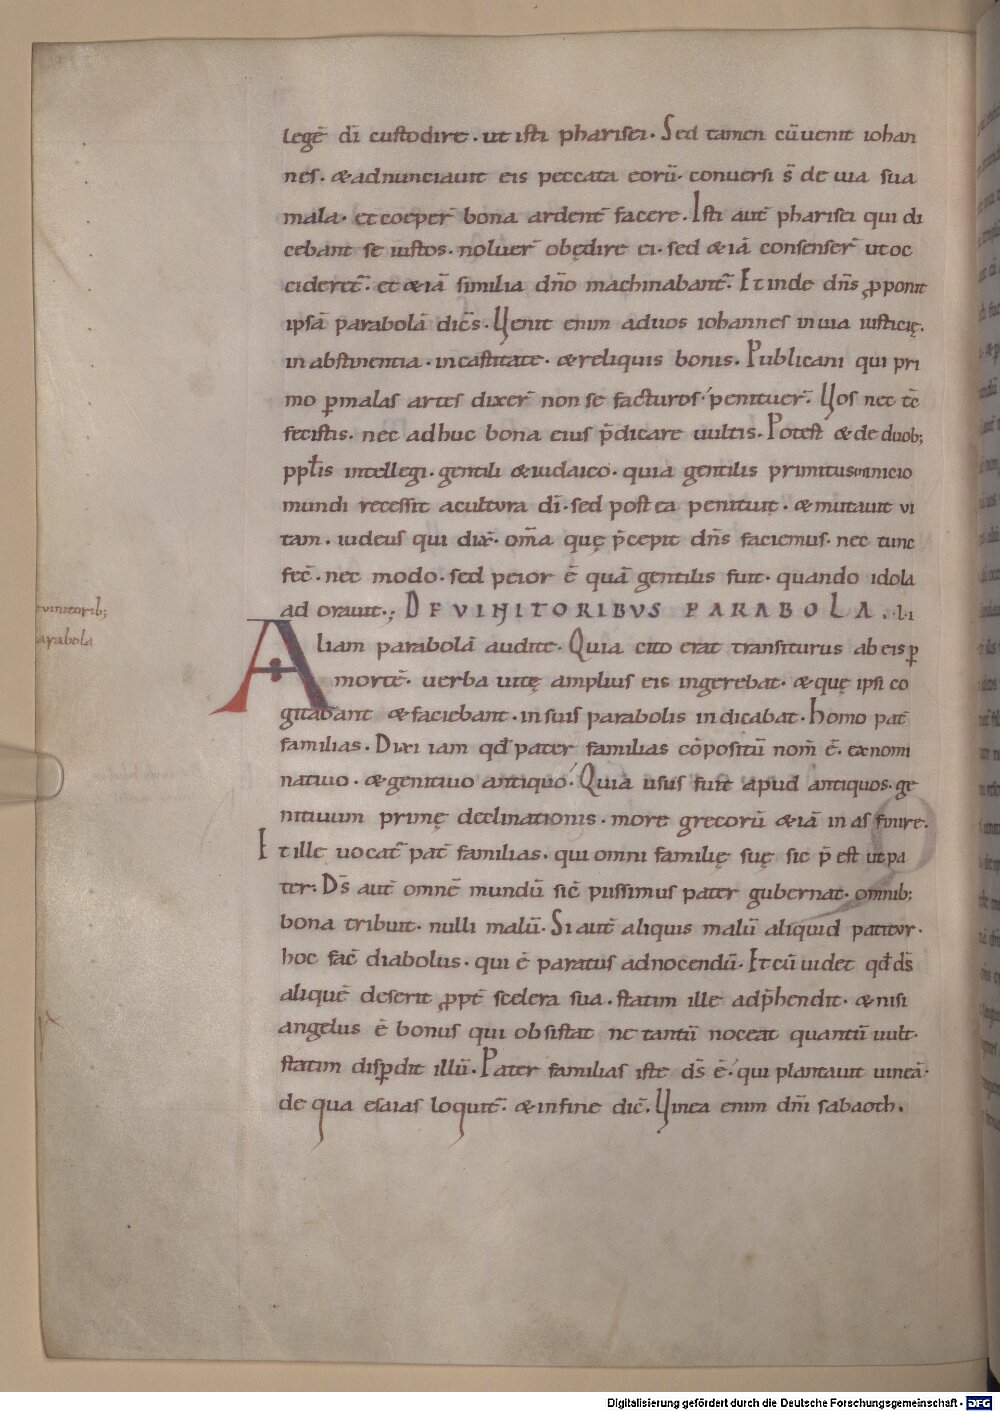 legē dī custodire. ut isti pharisei. Sed tamen cū uenit iohan
nes. & adnunciauit eis peccata eorū. conuersi s̄ de uia sua
mala. et coeper̄ bona ardent̄ facere. Isti aut̄ pharisei qui di
cebant se iustos. noluer̄ obędire ei. sed & iā consenser̄ ut oc
cideret̄. et & iā similia dn̄o machinabant̄. Et inde dn̄s ꝓponit
ipsā parabolā dic̄s. Uenit enim ad uos iohannes in uia iusticię.
in abstinentia. in castitate. & reliquis bonis. Publicani qui pri
mo ꝑ malas artes dixer̄ non se facturos. penituer̄. Uos nec tc̄
fecistis. nec adhuc bona eius p̄dicare uultis. Potest & de duob;
ppl̄is intellegi. gentili & iudaico. quia gentilis primitus in inicio
mundi recessit a cultura dī. sed postea penituit. & mutauit ui
tam. iudeus qui dix̄. om̄a quę p̄cepit dn̄s faciemus. nec tunc
fec̄. nec modo. sed peior ē quā gentilis fuit. quando idola
adorauit.; DE VINITORIBVS PARABOLA. .l.i
Aliam parabolā audite. Quia cito erat transiturus ab eis ꝑ
mortē. uerba uitę amplius eis ingerebat. & quę ipsi co
gitabant & faciebant. in suis parabolis indicabat. Homo pat̄
familias. Dixi iam qd̄ pater familias cōpositū nom̄ ē. ex nomi
natiuo. & genitiuo antiquo. Quia usus fuit apud antiquos. ge
nitiuum primę declinationis. more grecorū & iā in as finire.
Et ille uocat̄ pat̄ familias. qui omni familię suę sic p̄ est ut pa
ter. Ds̄ aut̄ omnē mundū sic̄ piissimus pater gubernat. omnib;
bona tribuit. nulli malū. Si aut̄ aliquis malū aliquid patitur.
hoc fac̄ diabolus. qui ē paratus ad nocendū. Et cū uidet qd̄ ds̄
aliquē deserit ꝓpt̄ scelera sua. statim ille adp̄hendit. & nisi
angelus ē bonus qui obsistat ne tantū noceat quantū uult.
statim disꝑdit illū. Pater familias iste ds̄ ē. qui plantauit uineā.
de qua esaias loquit̄. & in fine dic̄. Uinea enim dn̄i sabaoth.
uinitorib;
arabola
Digitalisierung gefördert durch die Deutsche Forschungsgemeinschaft - DFG